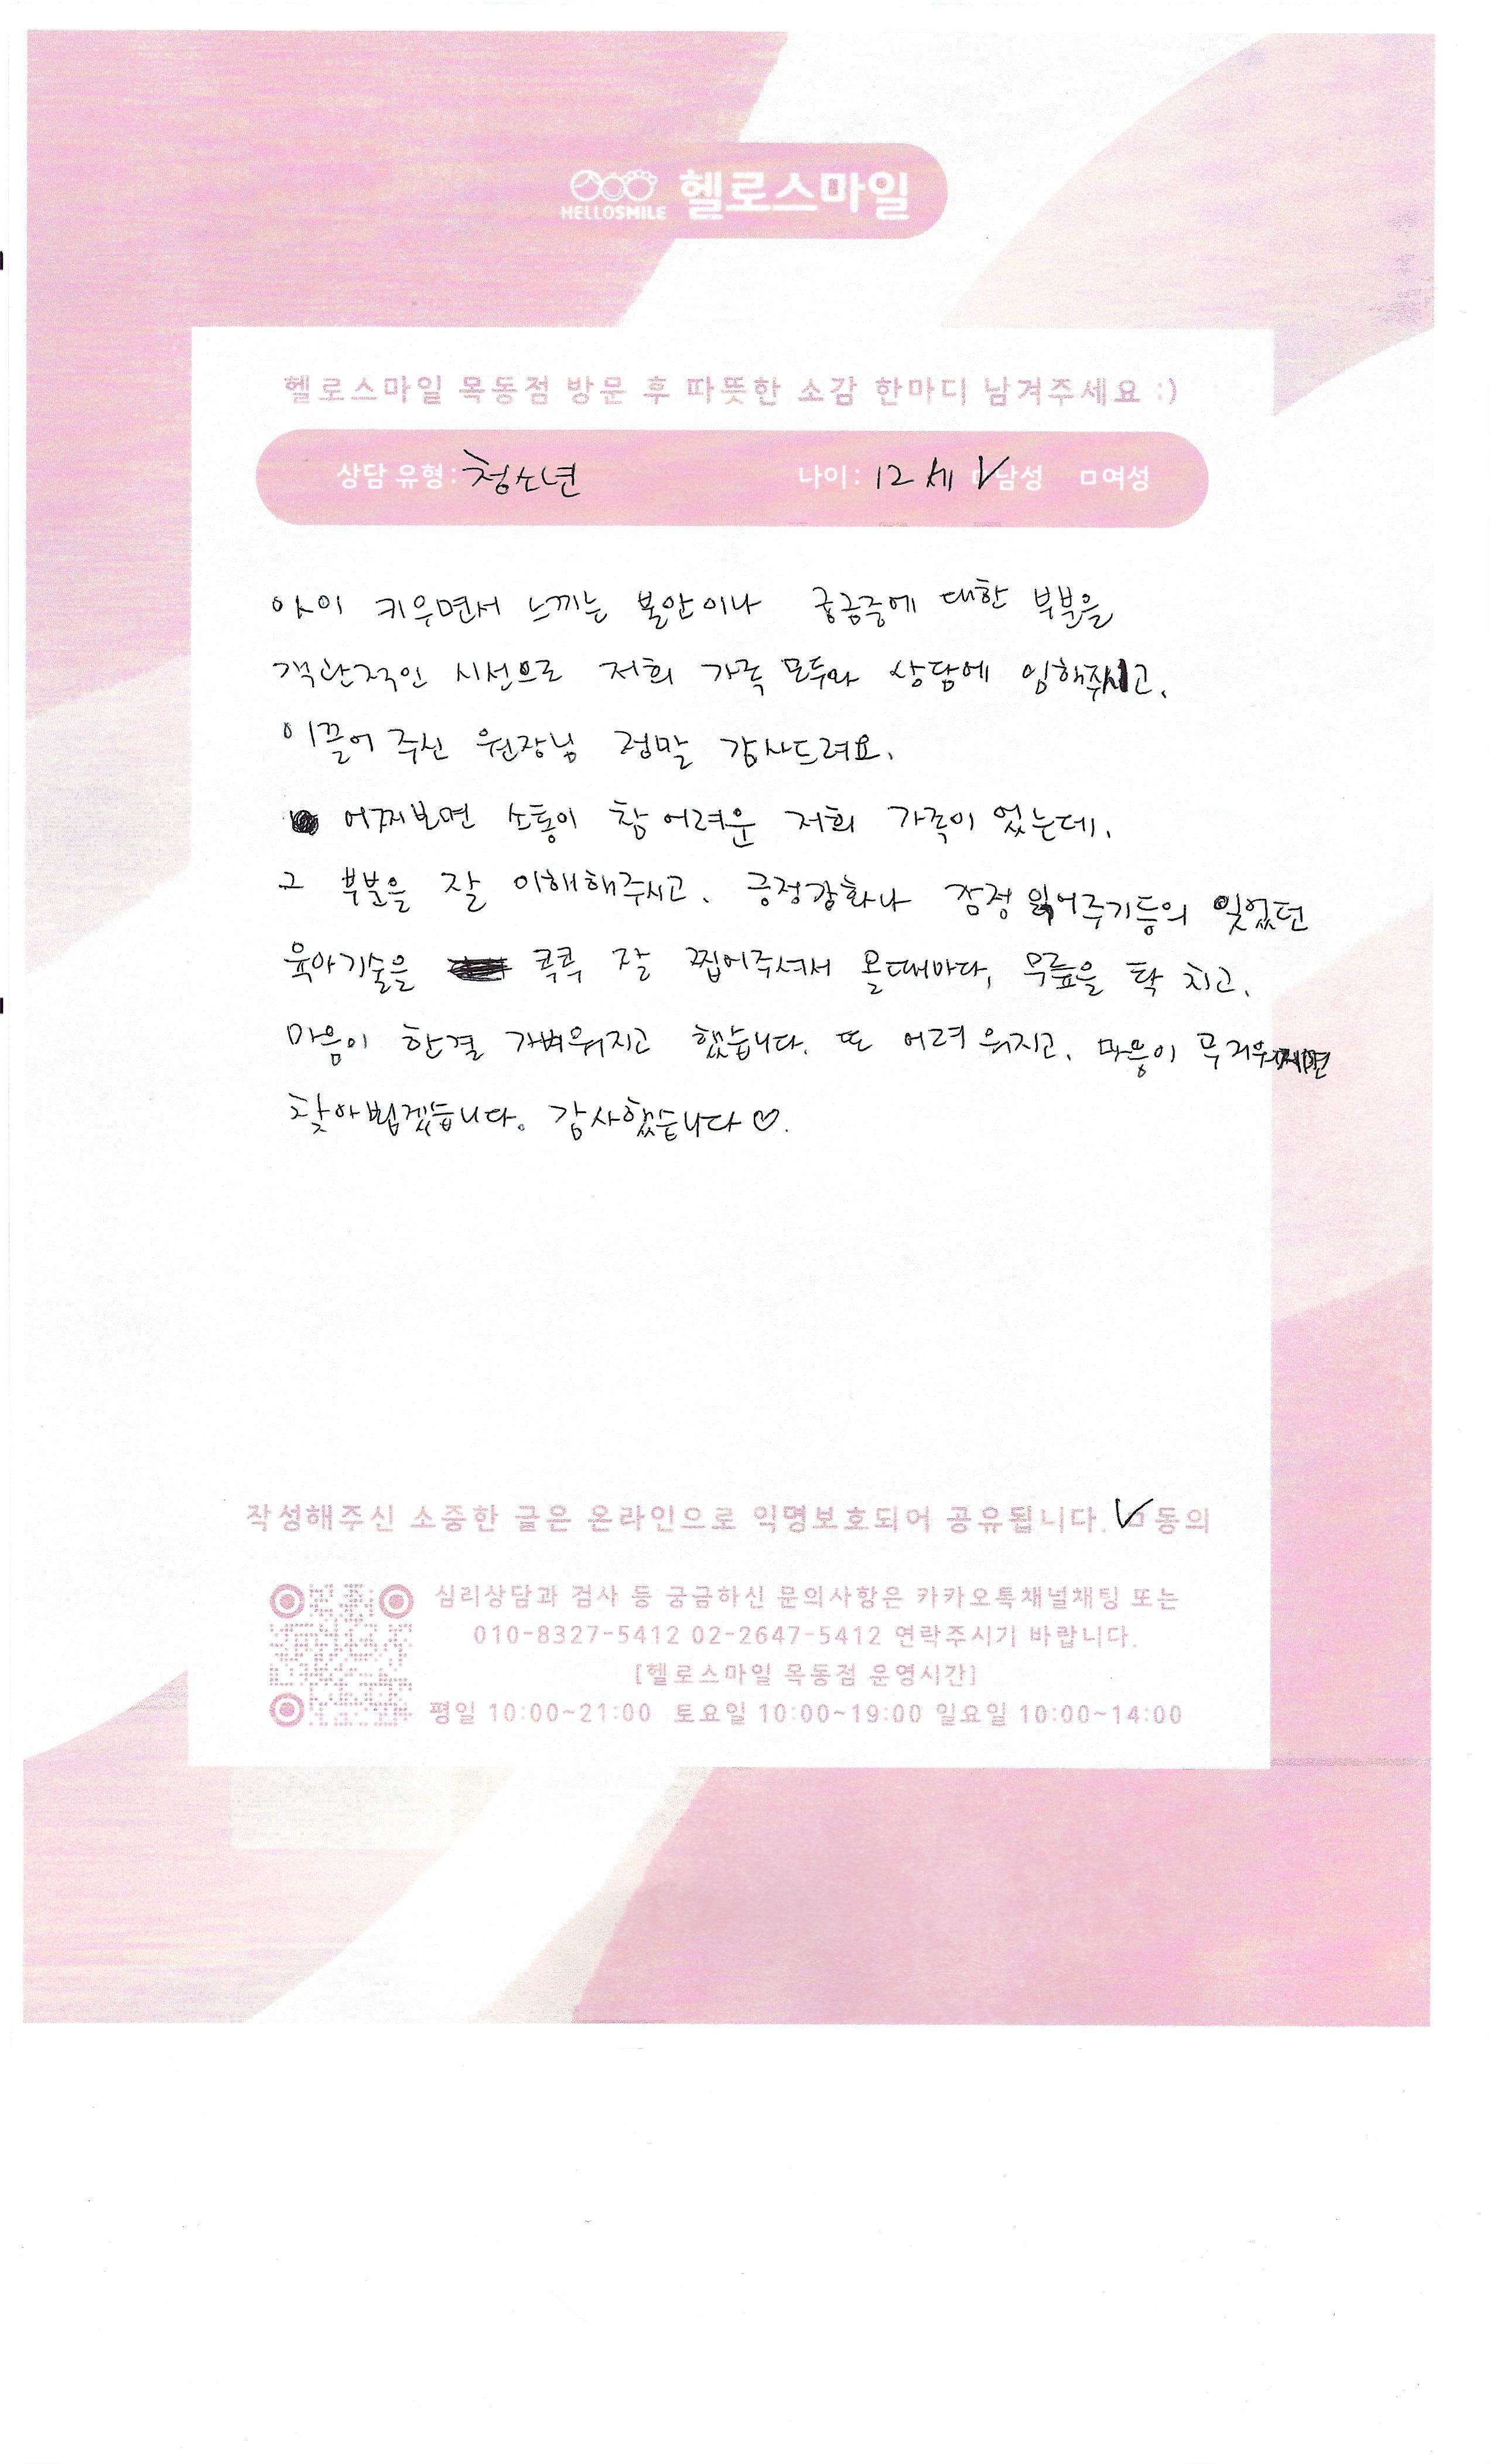 HELLOSMILE 헬로스마일
헬로스마일 목동점 방문 후 따뜻한 소감 한마디 남겨주세요 :)
상담 유형: 청소년 나이: 12세 ☑남성 □여성
아이 키우면서 느끼는 불안이나 궁금증에 대한 부분을
객관적인 시선으로 저희 가족 모두와 상담에 임해주시고,
이끌어 주신 원장님 정말 감사드려요.
어찌보면 소통이 참 어려운 저희 가족이 었는데,
그 부분을 잘 이해해주시고, 긍정강화나 감정 읽어주기등의 잊었던
육아기술을 콕콕 잘 찝어주셔서 올때마다, 무릎을 탁 치고,
마음이 한결 가벼워지고 했습니다. 또 어려워지고, 마음이 무거워지면
찾아뵙겠습니다. 감사했습니다♡.
작성해주신 소중한 글은 온라인으로 익명보호되어 공유됩니다. ☑동의
심리상담과 검사 등 궁금하신 문의사항은 카카오톡채널채팅 또는
010-8327-5412 02-2647-5412 연락주시기 바랍니다.
[헬로스마일 목동점 운영시간]
평일 10:00~21:00 토요일 10:00~19:00 일요일 10:00~14:00